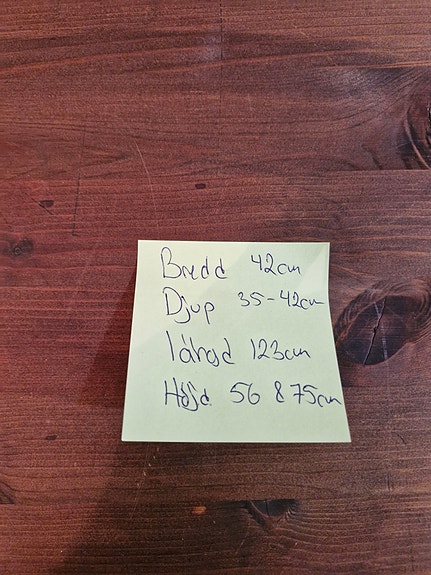 Bredd 42cm
Djup 35-42cm
Längd 123cm
Höjd 56 & 75cm